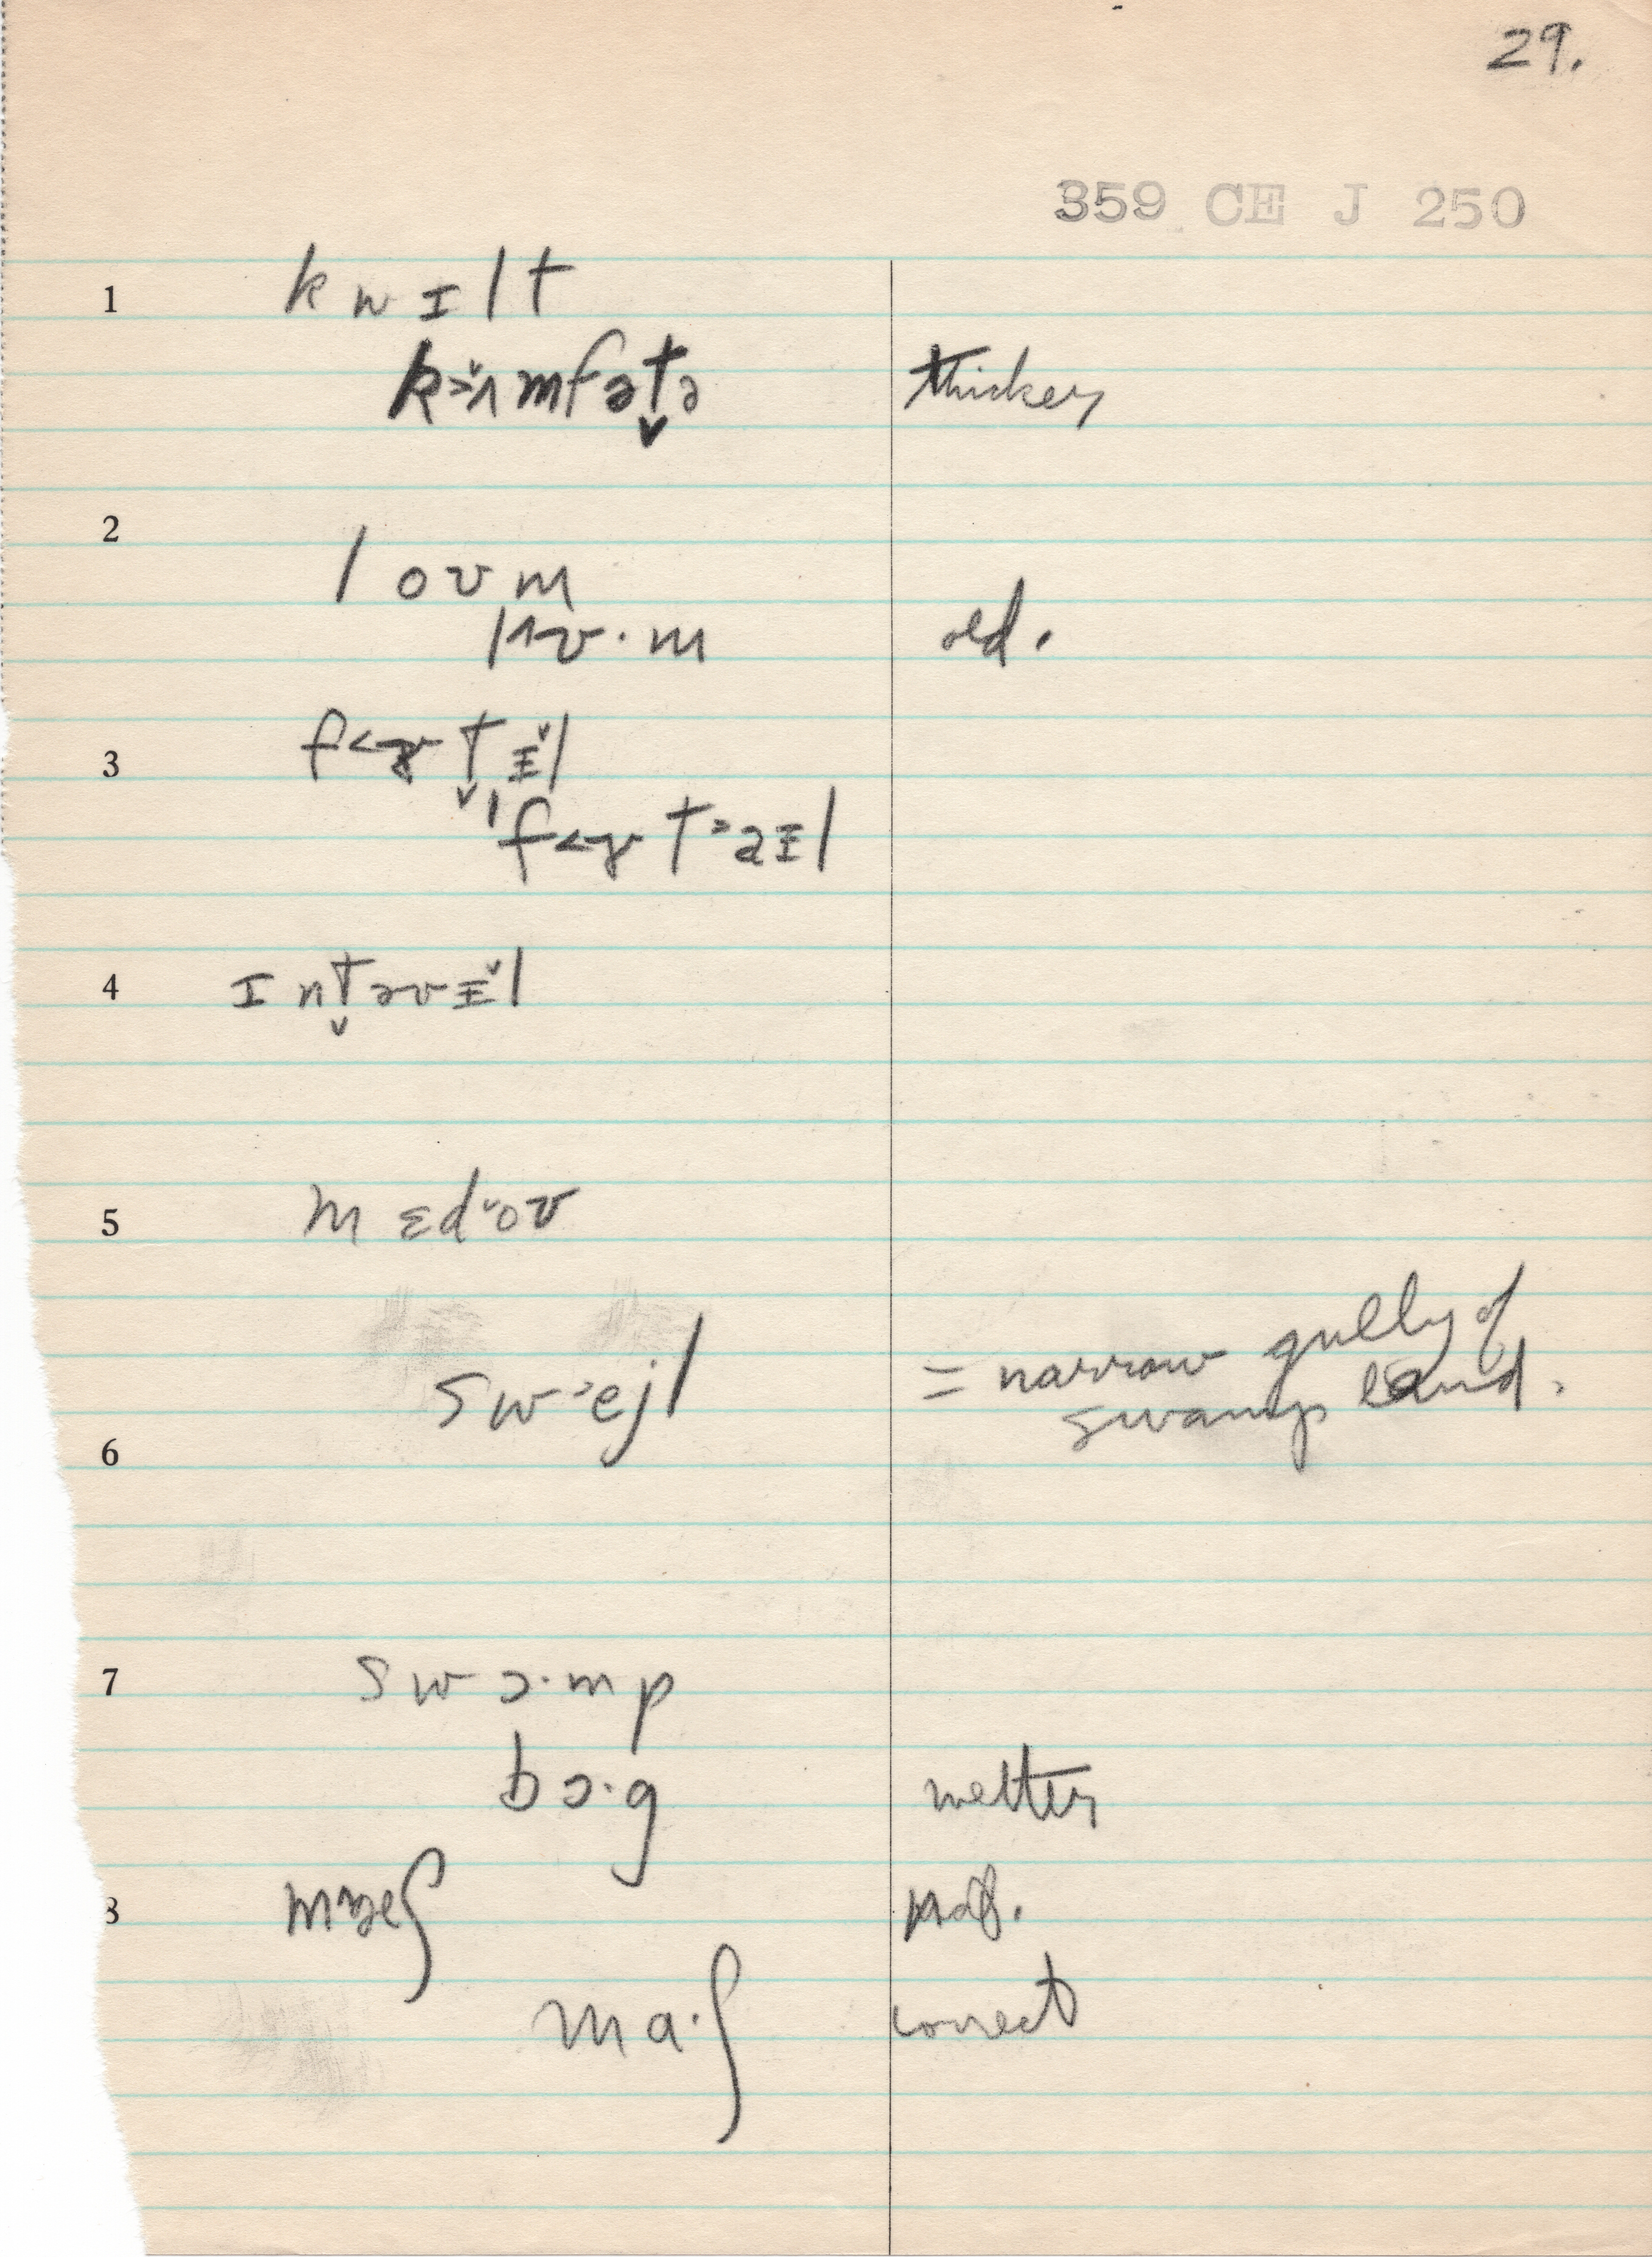 29.
359 CE J 250
1 k w ɪ l t
k>ʌ̆mfət̬ə thicker
2 l o ʊ m
lʌʊ·m old.
3 t̬ ɪ̆l
4 ɪ nt̬əvɪ̆l
5 m ɛd˘oʊ
sw˃ejl = narrow gully of
swamp land.
6
7 s w ɔ·m p
bɔ·g wetter
8 ʃ
m a·ʃ correct